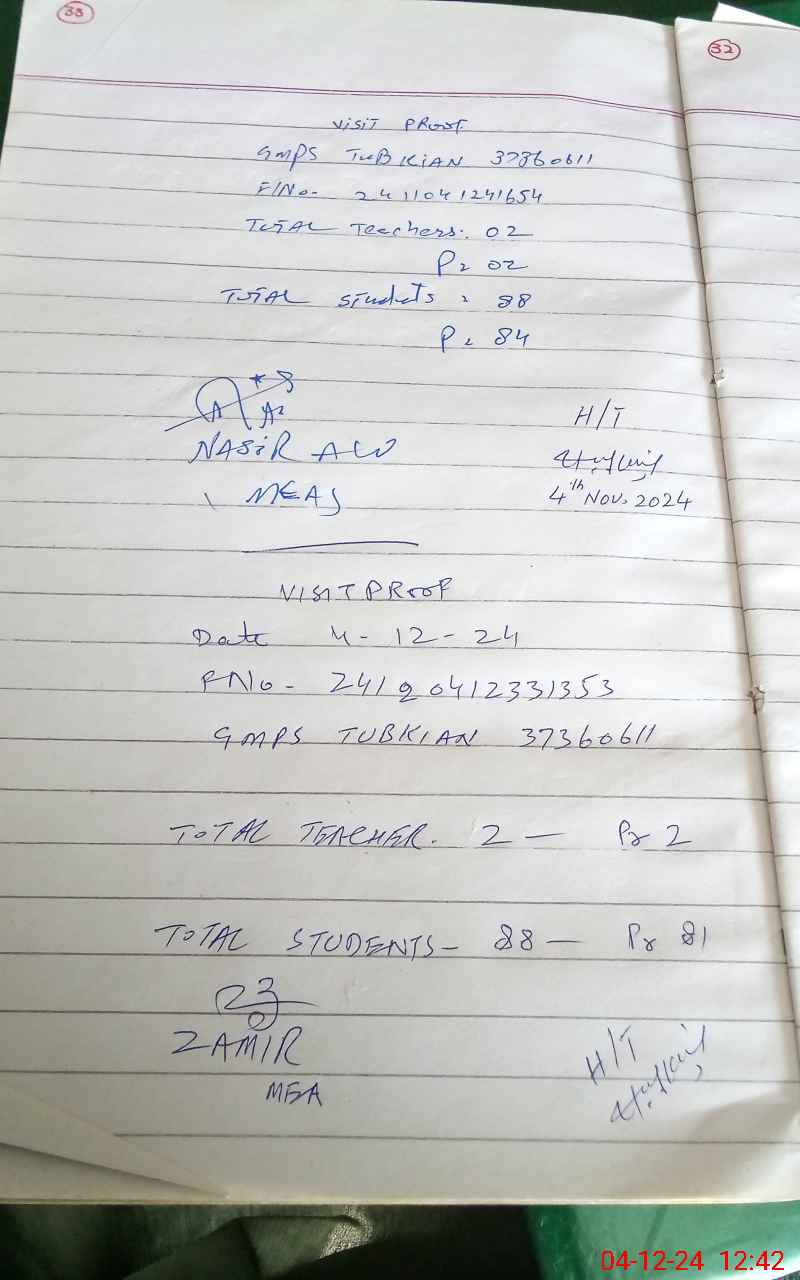 33
32
VISIT PROOF
GMPS TUBKIAN 37360611
F/No. 2411041241654
TOTAL Teachers: 02
P= 02
TOTAL students = 88
P= 84
NASIR
H/T
MEAS
4th Nov. 2024
VISIT PROOF
Date 4-12-24
FNo- 24120412331353
GMPS TUBKIAN 37360611
TOTAL TEACHER. 2 — Pr 2
TOTAL STUDENTS- 88 — Pr 81
ZAMIR
MEA
H/T
04-12-24 12:42